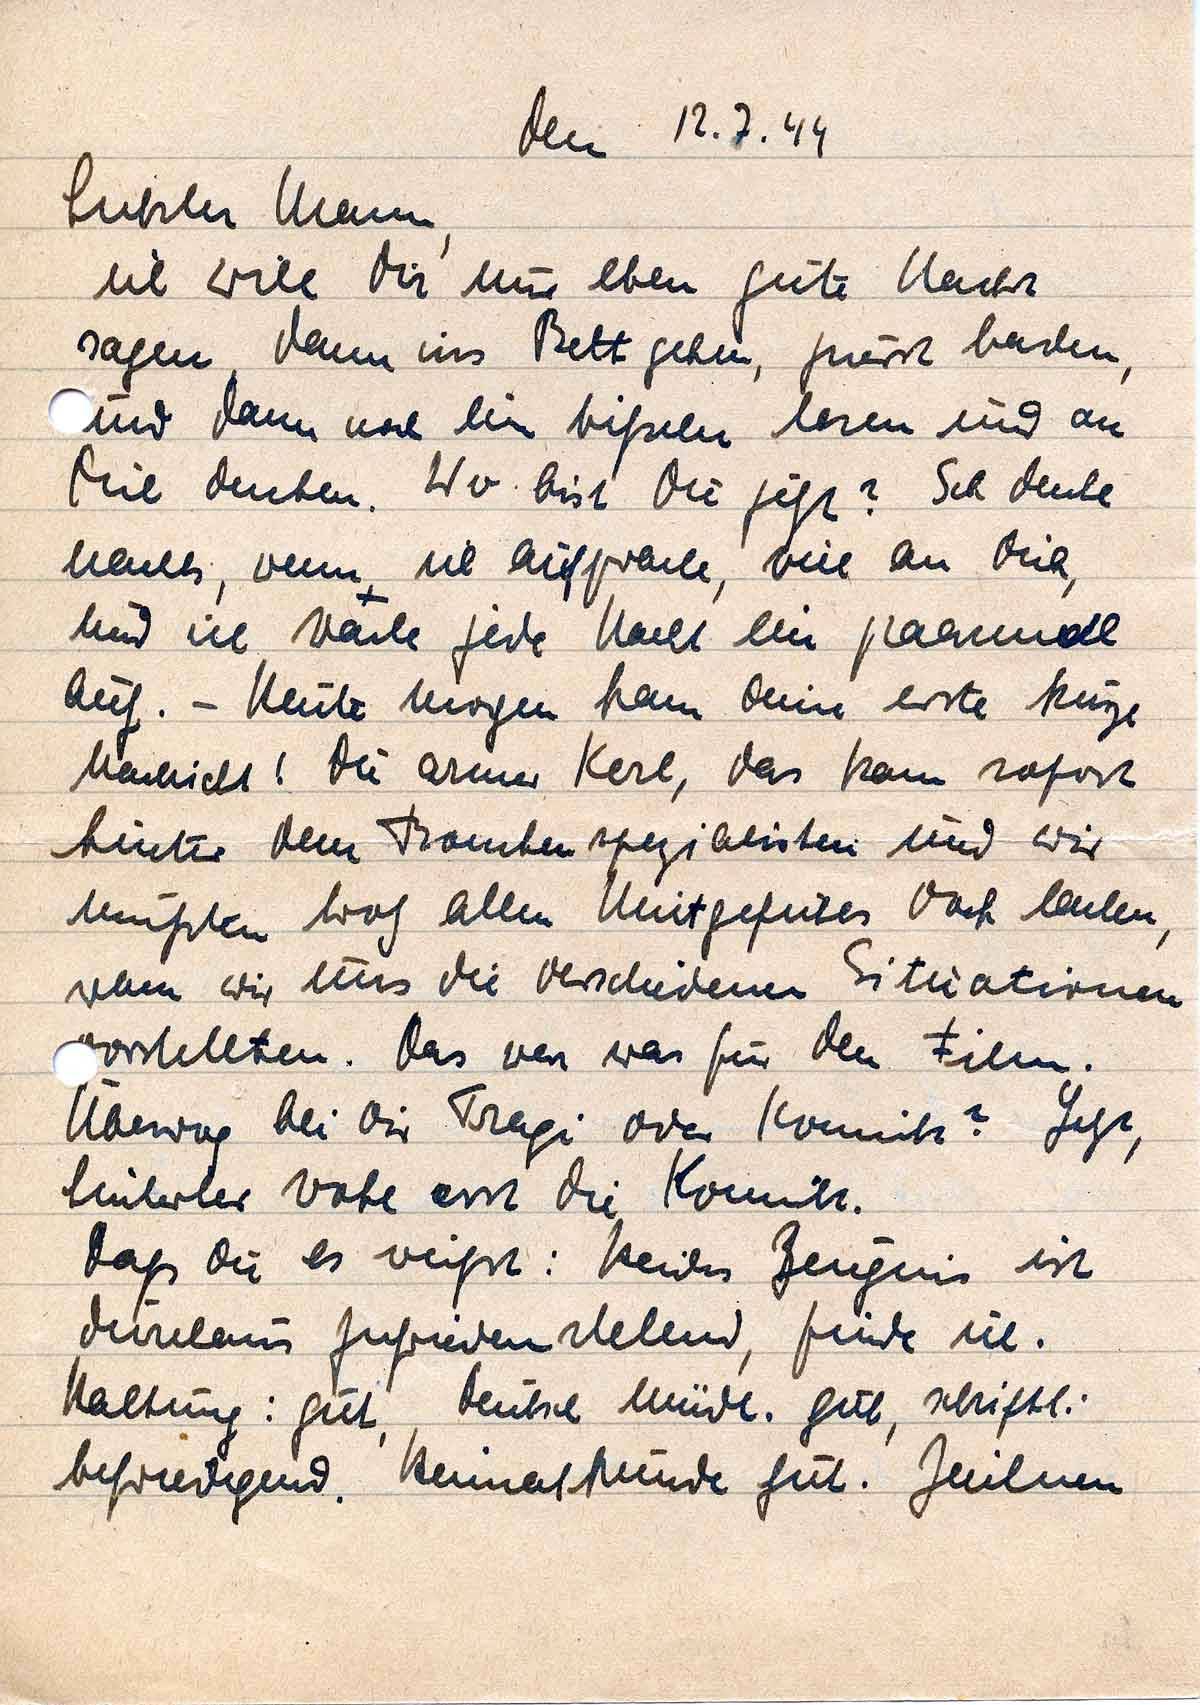 den 12.7.44
Liebster Mann,
ich will Dir nur eben gute Nacht
sagen, dann ins Bett gehen, zuerst baden,
und dann noch ein bißchen lesen und an
Dich denken. Wo bist Du jetzt? Ich denke
nachts, wenn ich aufwache, viel an Dich,
und ich wache jede Nacht ein paarmal
auf. – Heute morgen kam Deine erste kurze
Nachricht! Du armer Kerl, das kam sofort
hinter dem Bombenspezialisten und wir
mußten trotz allen Mitgefühles doch lachen,
wenn wir uns die verschiedenen Situationen
vorstellten. Das war was für den Film.
Überwog bei Dir Tragi oder Komik? Jetzt,
hinterher wohl erst die Komik.
Daß Du es weißt: Heides Zeugnis ist
durchaus zufriedenstellend, finde ich.
Haltung: gut, Deutsch mündl. gut, schriftl.:
befriedigend. Heimatkunde gut. Zeichnen